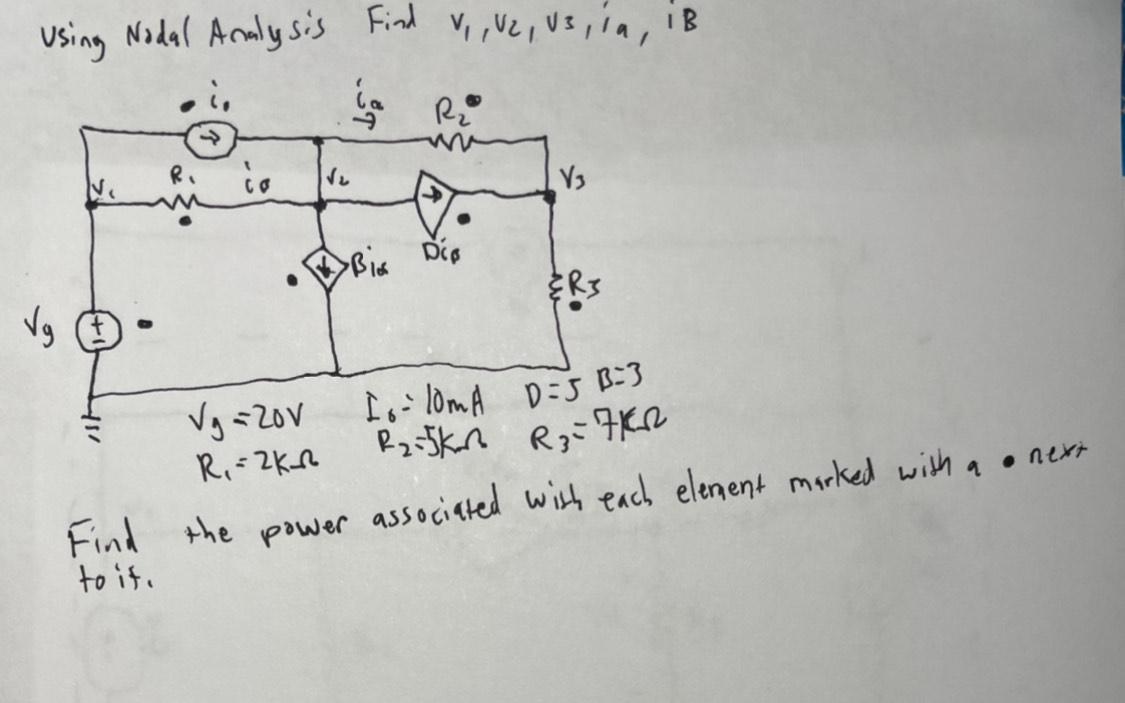 Using Nodal Analysis Find V1, V2, V3, ia, iB
i0 ia R2
V1 R1 iø V2 V3
Biα Diø
R3
Vg + -
Vg = 20V I0 = 10mA D=5 B=3
R1 = 2KΩ R2=5KΩ R3=7KΩ
Find the power associated with each element marked with a • next
to it.